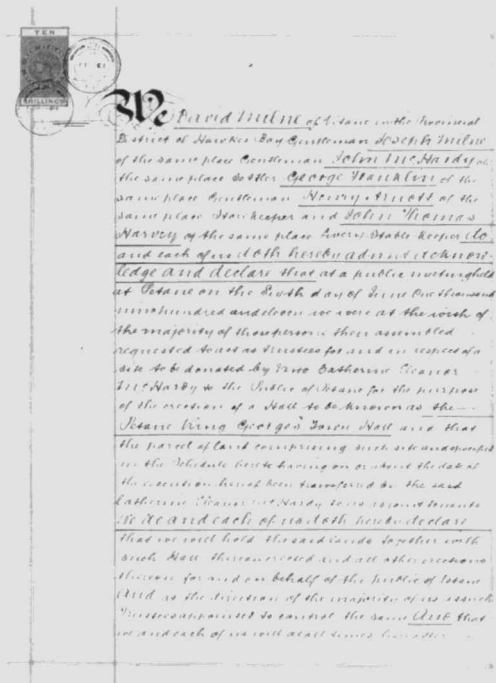 TEN
SHILLINGS
We David Milne of Petane in the Provincial
District of Hawkes Bay Gentleman Joseph Milne
of the same place Gentleman John McHardy of
the same place Settler George Franklin of the
same place Gentleman Henry Arnott of the
same place Storekeeper and John Thomas
Harvey of the same place Livery Stable Keeper do
and each of us doth hereby admit acknow-
ledge and declare that at a public meeting held
at Petane on the Sixth day of June One thousand
nine hundred and eleven we were at the wish of
the majority of those persons then assembled
requested to act as trustees for and in respect of a
site to be donated by Catherine Eleanor
McHardy to the Public of Petane for the purpose
of the erection of a Hall to be known as the
"Petane King George's Town Hall" and that
the parcel of land comprising such site and specified
in the Schedule hereto having on or about the date of
the execution hereof been transferred by the said
Catherine Eleanor McHardy to us as joint tenants
We do and each of us doth hereby declare
that we will hold the said lands together with
such Hall thereon erected and all other erections
thereon for and on behalf of the public of Petane
And at the direction of the majority of us as such
Trustees appointed to control the same And that
we and each of us will at all times hereafter